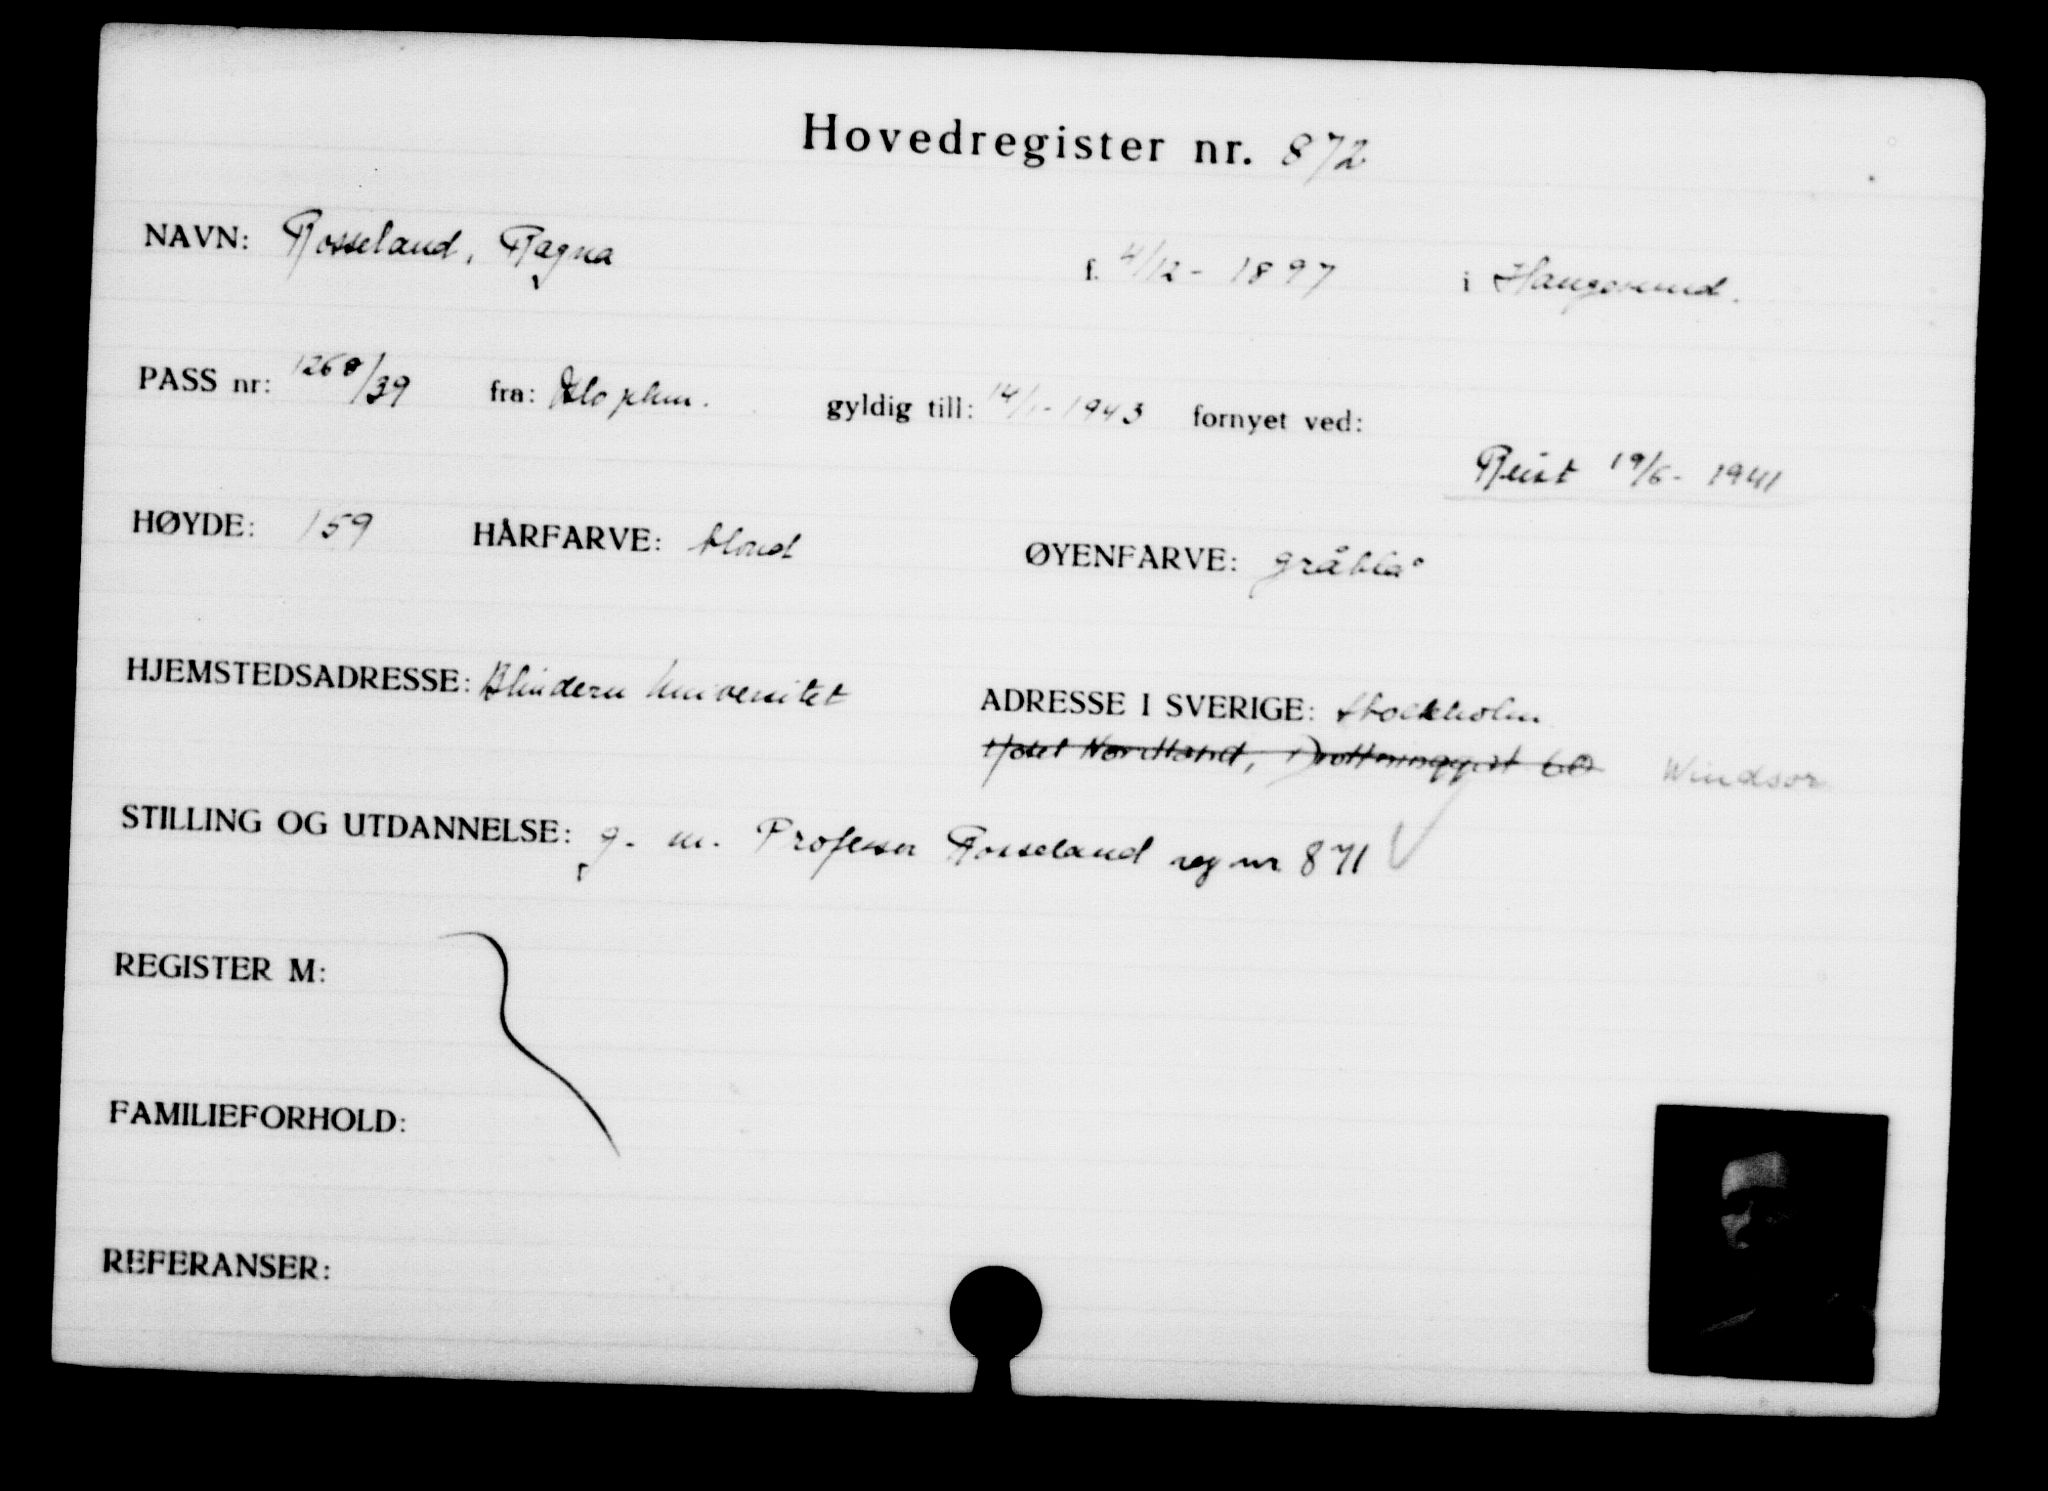 Hovedregister nr. 872
NAVN: Rosseland, Ragna f. 4/12 - 1897 i Haugesund.
PASS nr: 1268/39 fra: gyldig till: 14/1 - 1943 fornyet ved:
Reist 19/6 - 1941
HØYDE: 159 HÅRFARVE: blond ØYENFARVE: gråblå
HJEMSTEDSADRESSE: Blindern Universitet ADRESSE I SVERIGE: Stockholm
Hotel Nordland, Drottninggat 60 Windsor
STILLING OG UTDANNELSE: g. m. Professor Rosseland reg nr 871
REGISTER M:
FAMILIEFORHOLD:
REFERANSER: